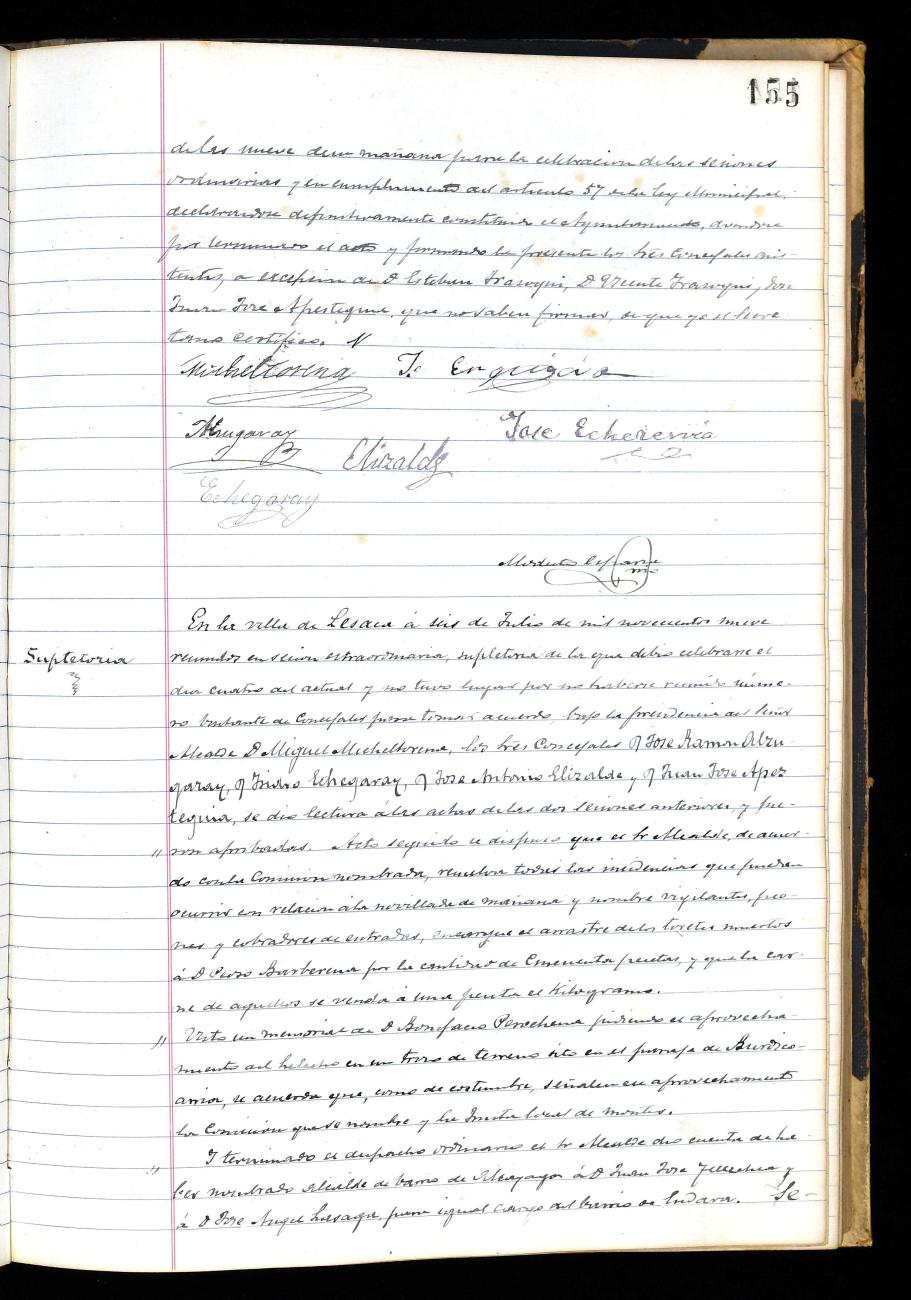 155
de las nueve de la mañana para la celebracion de las sesiones
ordinarias y en cumplimiento del articulo 57 de la ley Municipal,
declarandose definitivamente constituido el Ayuntamiento, dandose
por terminado el acto y firmando la presente los tres Concejales asis-
tentes, a excepcion de D Esteban Irazoqui, D Vicente Irazoqui, y don
Juan Jose Apestegui, que no saben firmar, de que yo el Secre
tario certifico.
Micheltorena J. Erquigáa
Alzugaray Jose Echeverria
Elizalde
Echegaray
Modesto
En la villa de Lesaca á seis de Julio de mil novecientos nueve
Supletoria
reunidos en sesion estraordinaria, supletoria de la que debio celebrarse el
dia cuatro del actual y no tuvo lugar por no haberse reunido núme-
ro bastante de Concejales para tomar acuerdo, bajo la presidencia del Señor
Alcalde D Miguel Micheltorena, los tres Concejales D Jose Ramon Alzu-
garay, D Isidro Echegaray, D Jose Antonio Elizalde y D Juan Jose Apez
teguia, se dio lectura á las actas de las dos sesiones anteriores, y fue-
" ron aprobadas. Acto seguido se dispuso que el Sr Alcalde, de acuer-
do con la Comision nombrada, resuelva todas las incidencias que puedan
ocurrir con relacion a la novillada de mañana y nombre vigilantes, peo-
nes y cobradores de entradas, encargue el arrastre de los toretes muertos
á D Pedro Barberena por la cantidad de Cincuenta pesetas, y que la car-
ne de aquellos se venda á una peseta el Kilogramo.
" Visto un memorial de D Bonifacio Perochena pidiendo el aprovecha-
miento del helecho en un trozo de terreno sito en el paraje de Burdico-
arria, se acuerda que, como de costumbre, señalen su aprovechamiento
la Comision que se nombre y la Junta local de montes.
" I terminado el despacho ordinario el Sr Alcalde dio cuenta de ha-
ber nombrado Alcalde de barrio de Alcayaga á D Juan Jose y
á D Jose Angel, para igual cargo del barrio de Endara. Se-